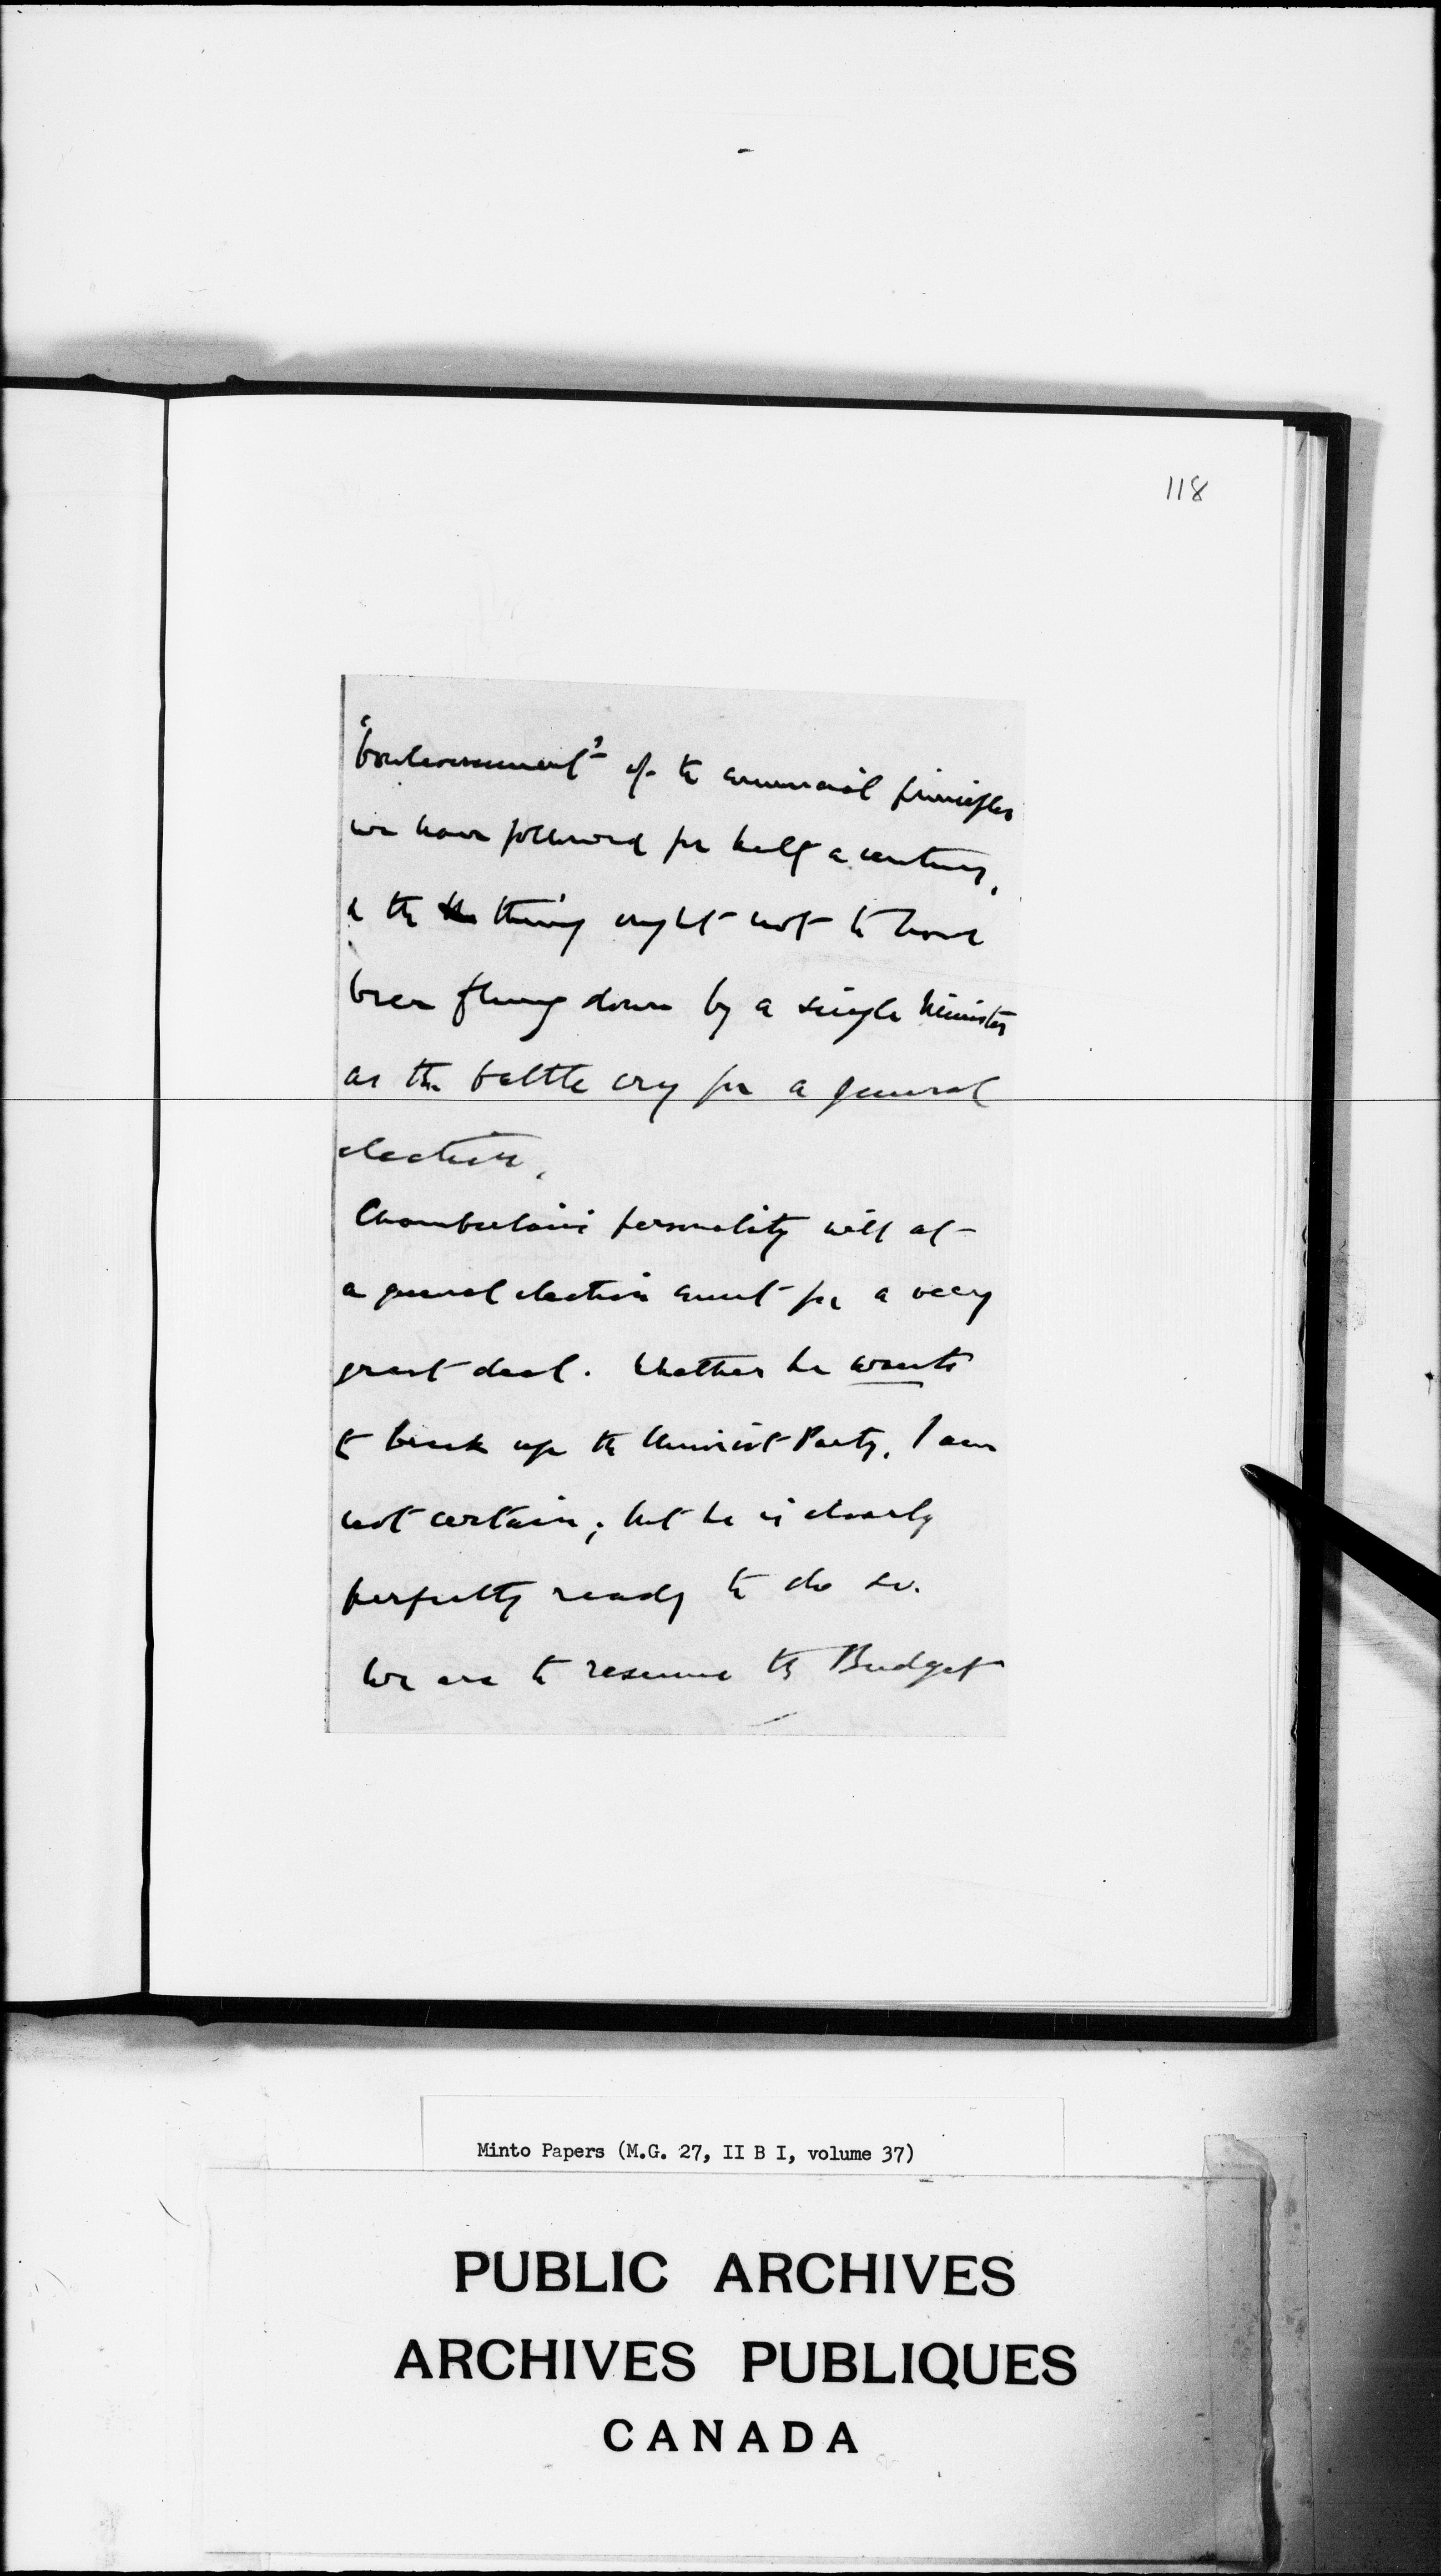 118
"bouleversement" of the commercial principles
we have followed for half a century,
& the thing ought not to have
been flung down by a single Minister
as the battle cry for a general
election.
Chamberlain's personality will at
a general election count for a very
great deal. Whether he wants
to break up the Unionist Party, I am
not certain; but he is clearly
perfectly ready to do so.
We are to resume the Budget
Minto Papers (M.G. 27, II B I, volume 37)
PUBLIC ARCHIVES
ARCHIVES PUBLIQUES
CANADA